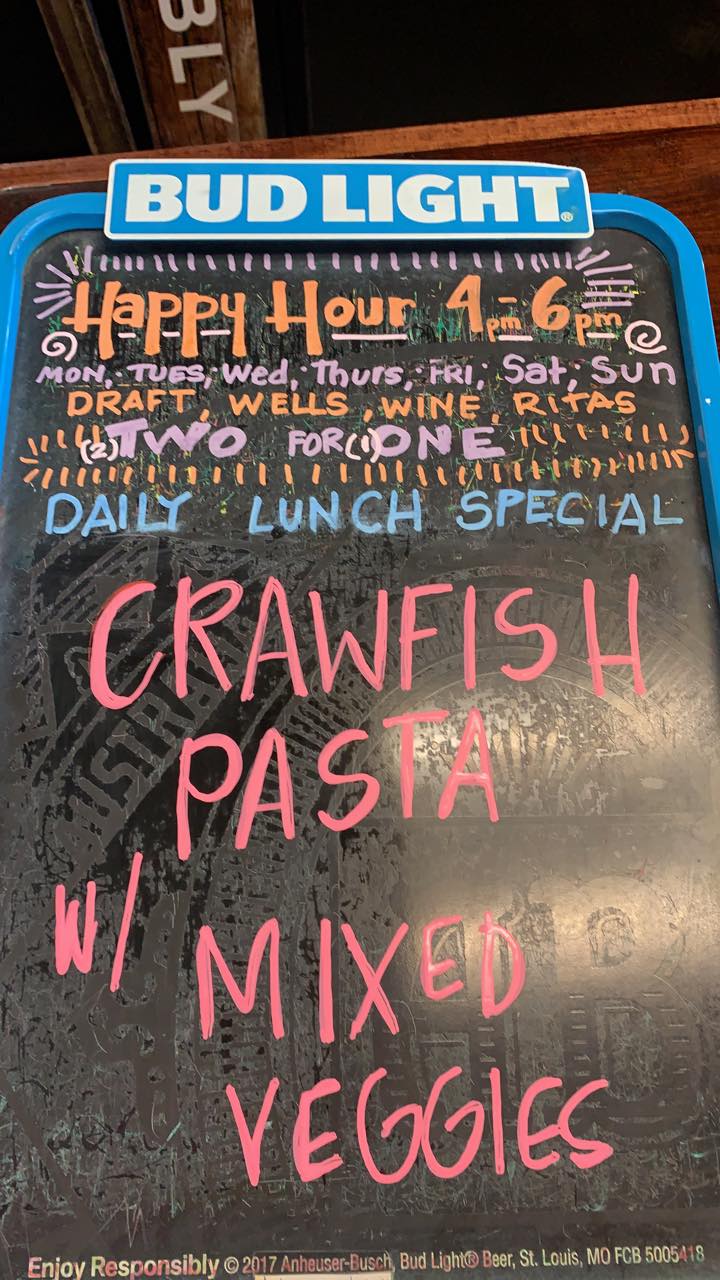 BLY
BUD LIGHT®
Happy Hour 4pm-6pm
MON, TUES, Wed, Thurs, FRI, Sat, Sun
DRAFT, WELLS, WINE, RITAS
(2) TWO FOR (1) ONE
DAILY LUNCH SPECIAL
CRAWFISH
PASTA
W/ MIXED
VEGGIES
Enjoy Responsibly © 2017 Anheuser-Busch, Bud Light® Beer, St. Louis, MO FCB 5005418